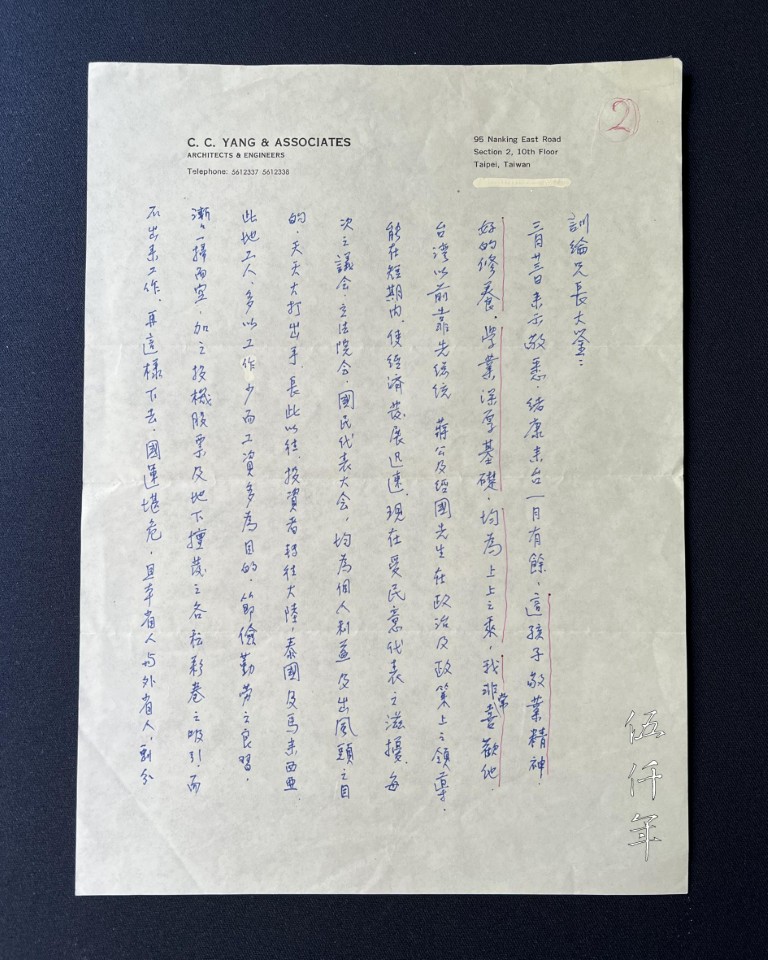 2
C. C. YANG & ASSOCIATES
ARCHITECTS & ENGINEERS
Telephone: 5612337 5612338
95 Nanking East Road
Section 2, 10th Floor
Taipei, Taiwan
訓綸兄長大鑒：
三月廿三日来示敬悉，緒康来台一月有餘，這孩子敬業精神，
好的修養，學業深厚基礎，均為上上之乘，我非常喜歡他．
台灣以前靠先總統 蔣公及經國先生在政治及政策上之領導，
能在短期內，使經濟發展迅速，現在受民意代表之滋擾，每
次之議会，立法院会，國民代表大会，均為個人利益及出風頭之目
的，天天大打出手，長此以往，投資者轉往大陸，泰國及馬来西亜．
此地工人，多以工作少而工資多為目的，節儉勤勞之良習，
漸々一掃而空，加之投機股票及地下擅發之各种彩卷之吸引，而
不出来工作，再這樣下去，國運堪危，且本省人与外省人，劃分
伍仟年